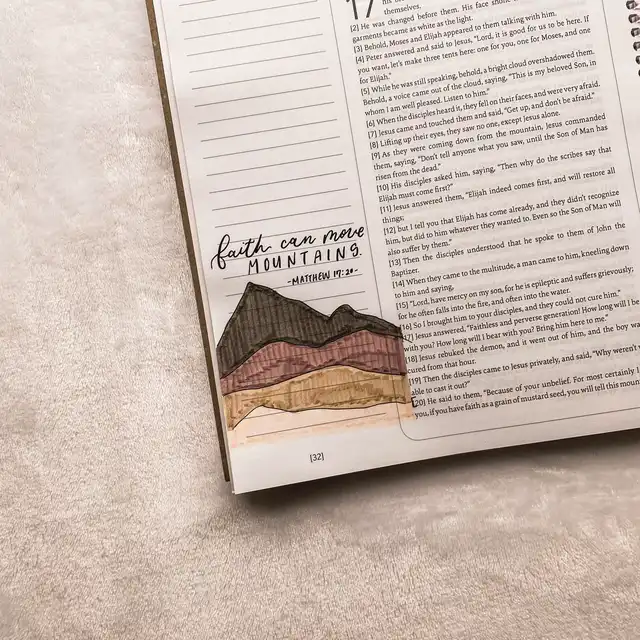 faith can move
MOUNTAINS.
-MATTHEW 17:20-
[32]
17
themselves.
[2] He was changed before them. His face shone
garments became as white as the light.
[3] Behold, Moses and Elijah appeared to them talking with him.
[4] Peter answered and said to Jesus, "Lord, it is good for us to be here. If
you want, let's make three tents here: one for you, one for Moses, and one
for Elijah."
[5] While he was still speaking, behold, a bright cloud overshadowed them.
Behold, a voice came out of the cloud, saying, "This is my beloved Son, in
whom I am well pleased. Listen to him."
[6] When the disciples heard it, they fell on their faces, and were very afraid.
[7] Jesus came and touched them and said, "Get up, and don't be afraid."
[8] Lifting up their eyes, they saw no one, except Jesus alone.
[9] As they were coming down from the mountain, Jesus commanded
them, saying, "Don't tell anyone what you saw, until the Son of Man has
risen from the dead."
[10] His disciples asked him, saying, "Then why do the scribes say that
Elijah must come first?"
[11] Jesus answered them, "Elijah indeed comes first, and will restore all
things;
[12] but I tell you that Elijah has come already, and they didn't recognize
him, but did to him whatever they wanted to. Even so the Son of Man will
also suffer by them."
[13] Then the disciples understood that he spoke to them of John the
Baptizer.
[14] When they came to the multitude, a man came to him, kneeling down
to him and saying,
[15] "Lord, have mercy on my son, for he is epileptic and suffers grievously;
for he often falls into the fire, and often into the water.
[16] So I brought him to your disciples, and they could not cure him."
[17] Jesus answered, "Faithless and perverse generation! How long will I be
with you? How long will I bear with you? Bring him here to me."
[18] Jesus rebuked the demon, and it went out of him, and the boy was
cured from that hour.
[19] Then the disciples came to Jesus privately, and said, "Why weren't
able to cast it out?"
[20] He said to them, "Because of your unbelief. For most certainly I
you, if you have faith as a grain of mustard seed, you will tell this moun